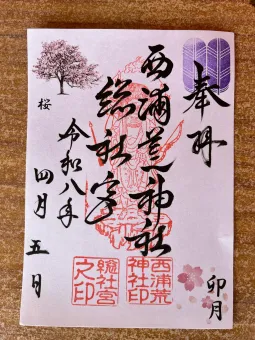 奉拝
西浦荒神社
総社宮
令和八年
四月五日
桜
卯月
西浦荒神社印
総社宮之印